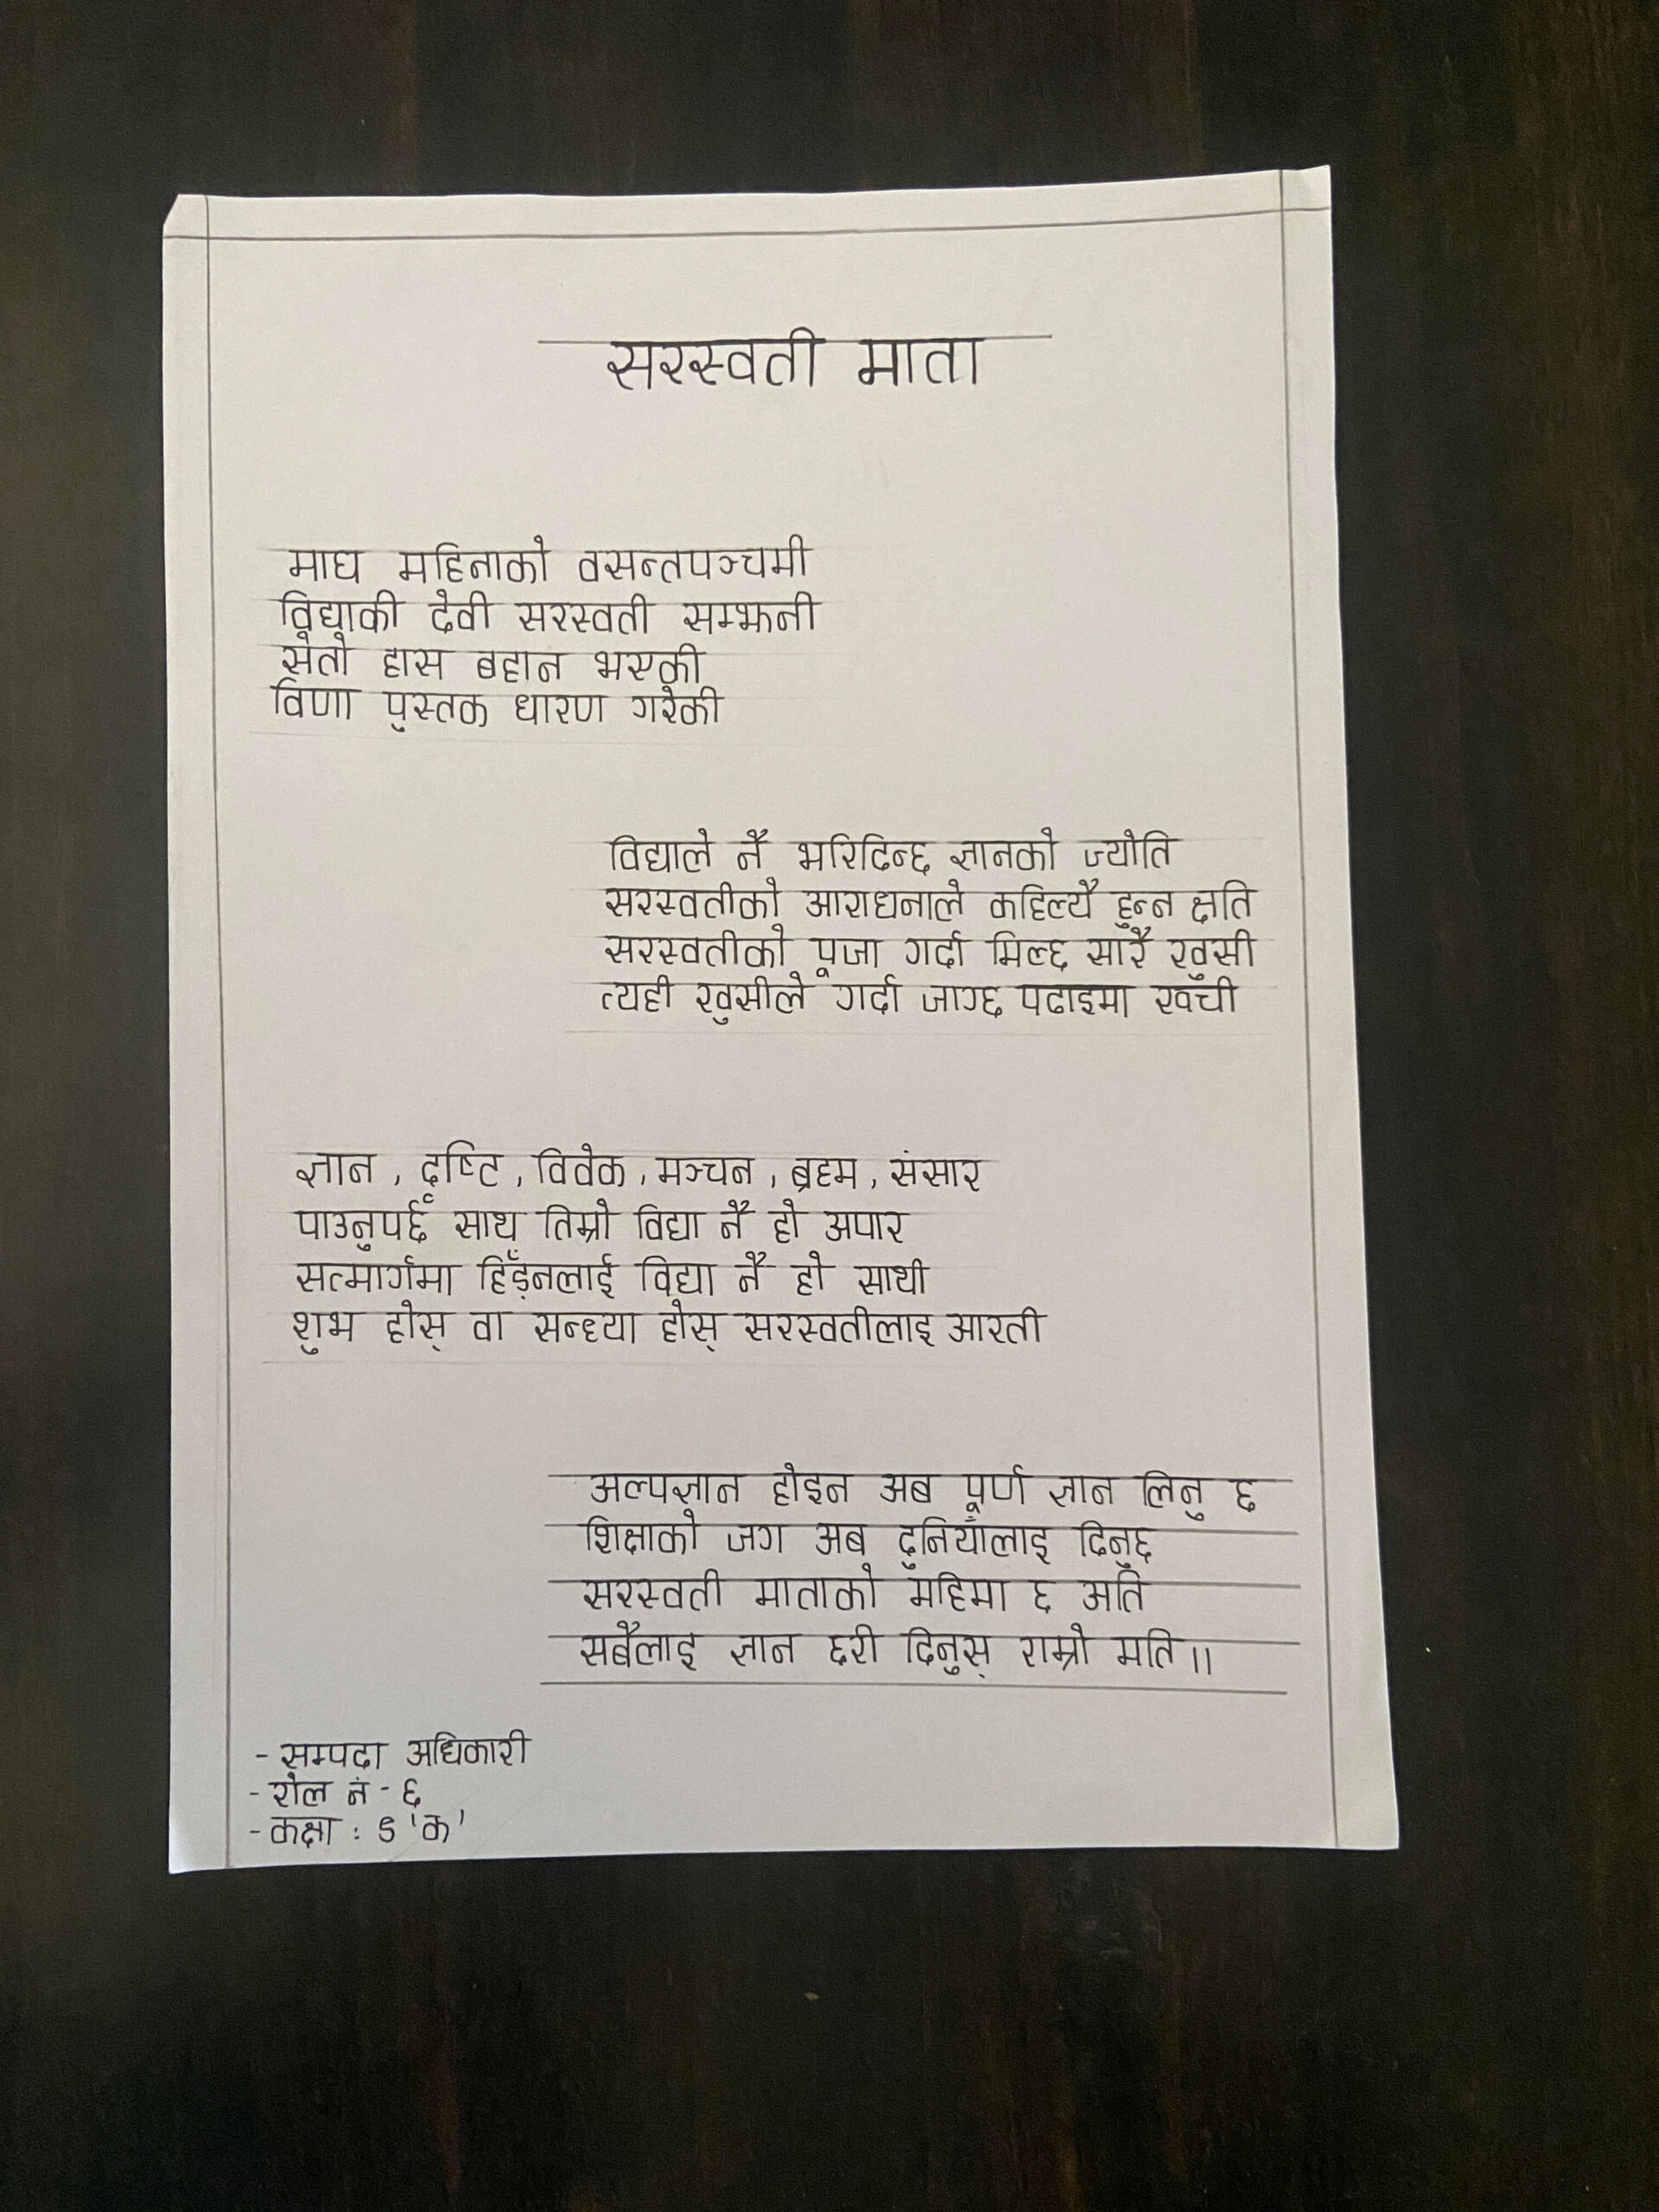 सरस्वती माता
माघ महिनाको वसन्तपञ्चमी
विद्याकी देवी सरस्वती सम्झनी
सेतो हास बहान भएकी
विणा पुस्तक धारण गरेकी
विद्याले नै भरिदिन्छ ज्ञानको ज्योति
सरस्वतीको आराधनाले कहिल्यै हुन्न क्षति
सरस्वतीको पूजा गर्दा मिल्छ सारै खुसी
त्यही खुसीले गर्दा जाग्छ पढाइमा रूची
ज्ञान, दृष्टि, विवेक, मञ्चन, ब्रह्म, संसार
पाउनुपर्छ साथ तिम्रो विद्या नै हो अपार
सत्मार्गमा हिँड्नलाई विद्या नै हो साथी
शुभ होस् वा सन्ध्या होस् सरस्वतीलाइ आरती
अल्पज्ञान होइन अब पूर्ण ज्ञान लिनु छ
शिक्षाको जग अब दुनियाँलाइ दिनुछ
सरस्वती माताको महिमा छ अति
सबैलाइ ज्ञान छरी दिनुस् राम्रो मति॥
- सम्पदा अधिकारी
- रोल नं - ६
- कक्षा : ९ 'क'